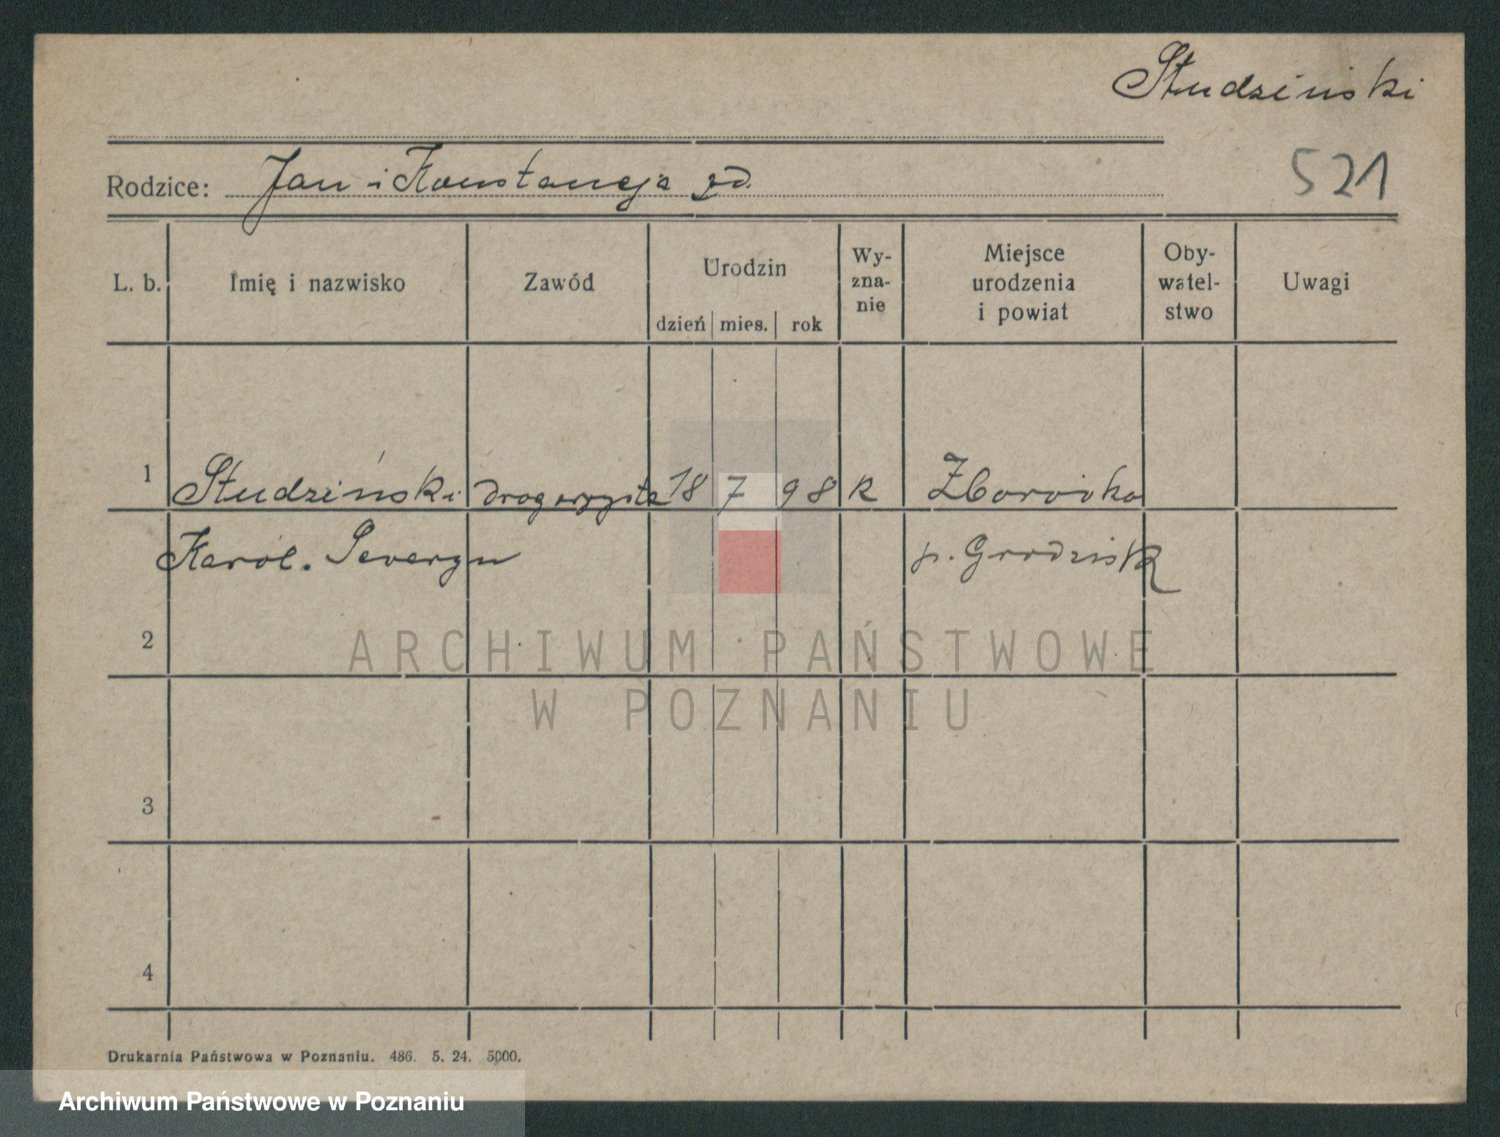 Studziński
Rodzice: Jan i Konstancja zd.
521
L. b. Imię i nazwisko Zawód Urodzin dzień mies. rok Wy-zna-nie Miejsce urodzenia i powiat Oby-watel-stwo Uwagi
1 Studziński drogerzysta 18 7 98 k Zborowko
Karol. Seweryn p. Grodzisk
2
ARCHIWUM PAŃSTWOWE
W POZNANIU
3
4
Drukarnia Państwowa w Poznaniu. 486. 5. 24. 5000.
Archiwum Państwowe w Poznaniu